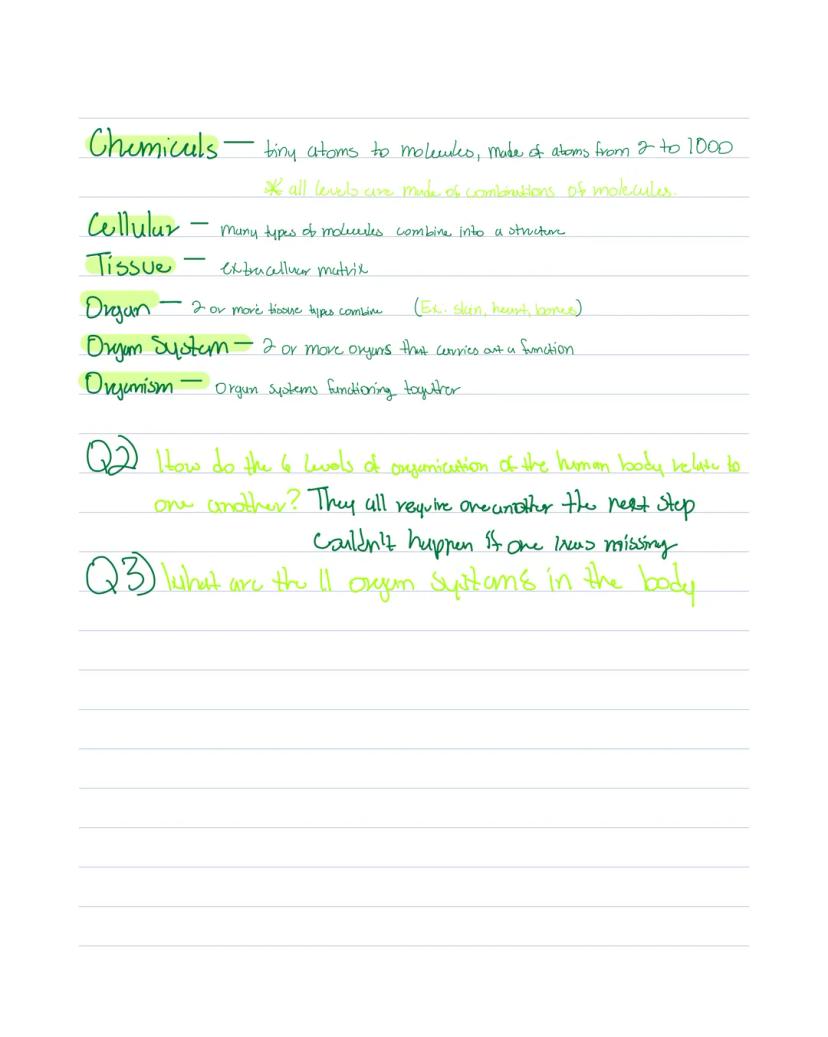 Chemicals — tiny atoms to molecules, made of atoms from 2 to 1000
* all levels are made of combinations of molecules.
Cellular — many types of molecules combine into a structure
Tissue — extracelluar matrix
Organ — 2 or more tissue types combine (Ex. skin, heart, bones)
Organ System — 2 or more organs that carries out a function
Organism — Organ systems functioning together
Q2) How do the 6 levels of organization of the human body relate to
one another? They all require one another the next step
Couldn't happen if one was missing
Q3) What are the 11 organ systems in the body